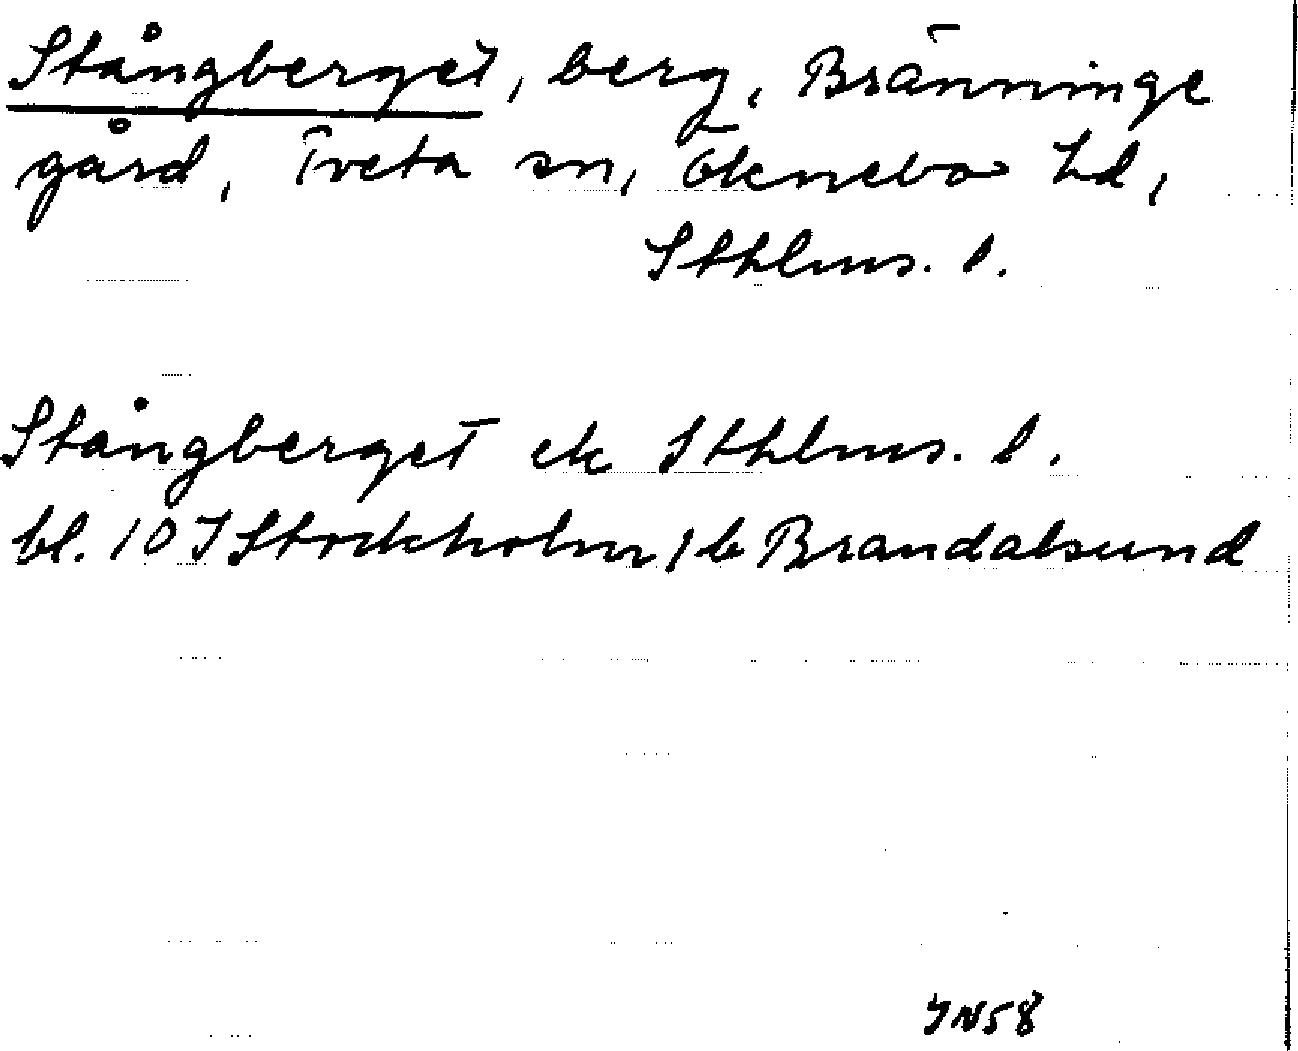 Stångberget, berg, Bränninge
gård, Tveta sn, Öknebo hd,
Sthlms. l.
Stångberget ek Sthlms. l.
bl. 10 I Stockholm, 1b Brandalsund
IN58